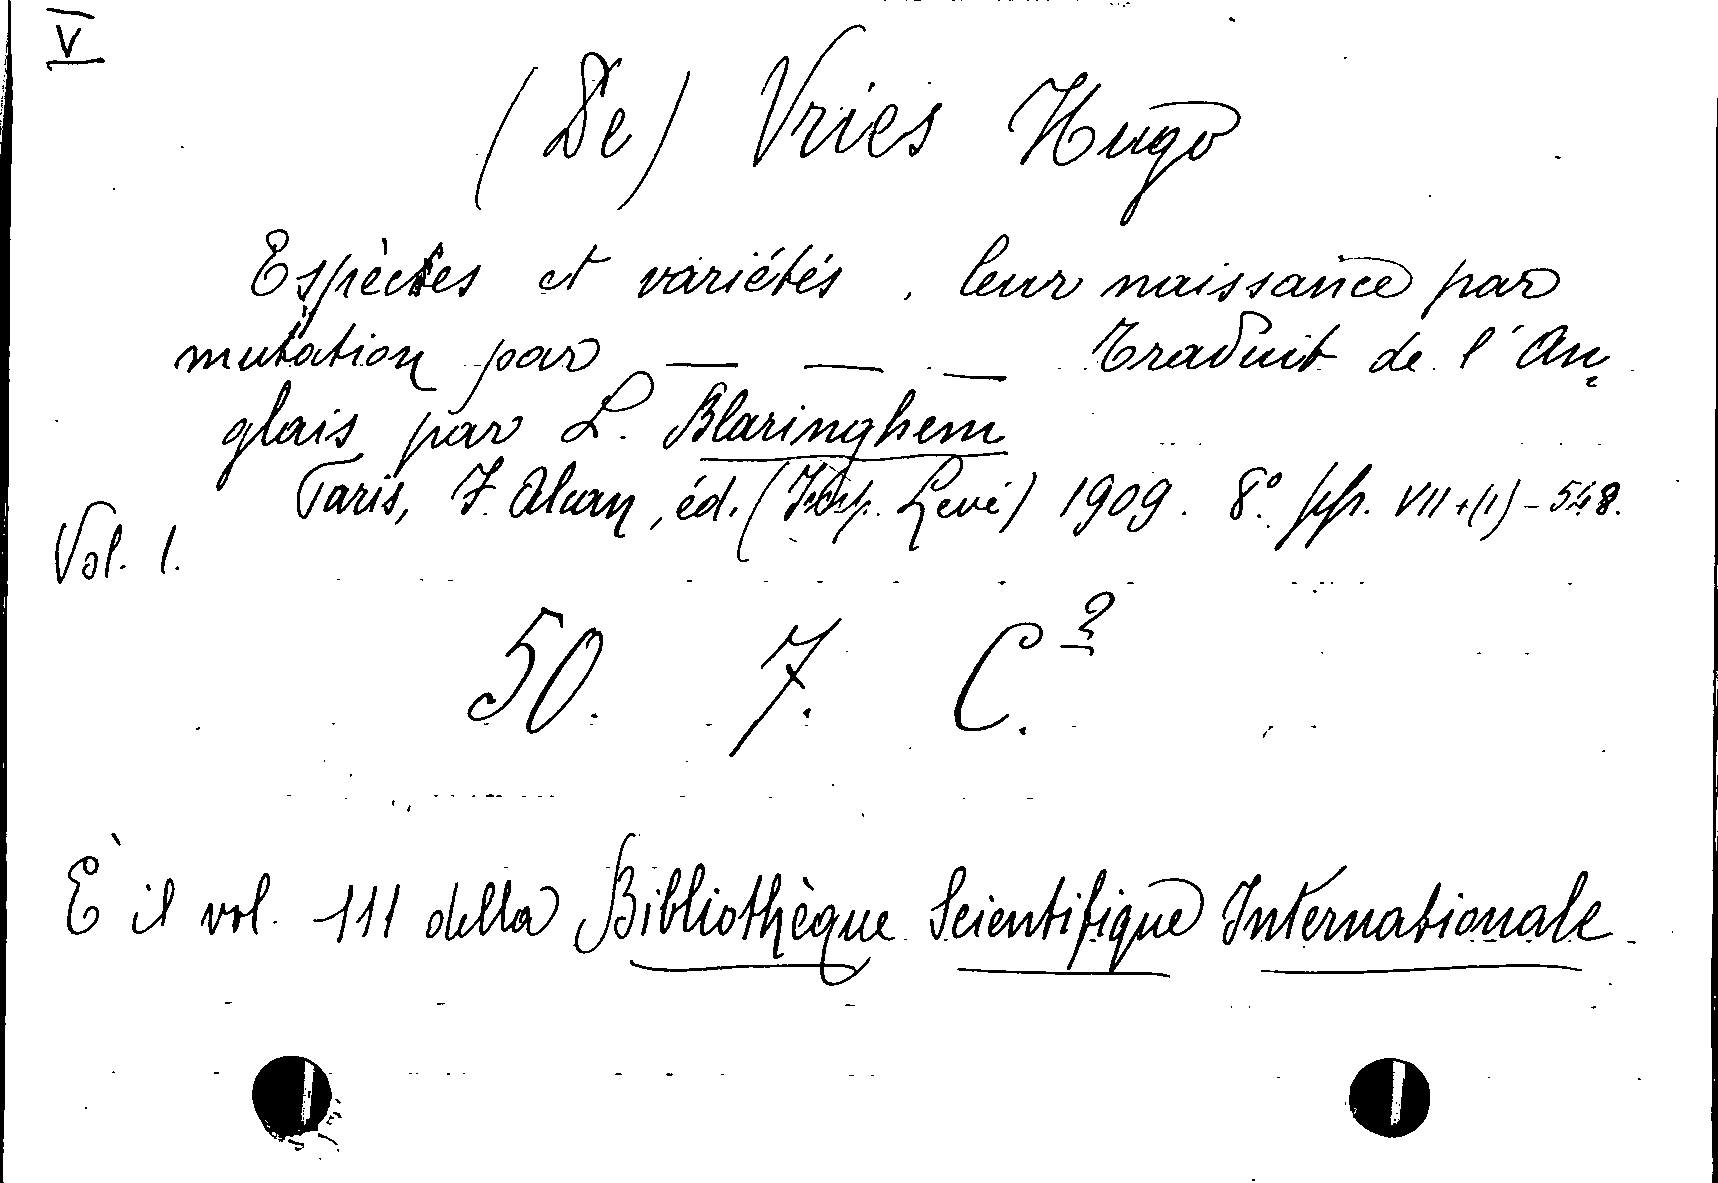 V
(De) Vries Hugo
Espèces et variétés, leur naissance par
mutation par — — — Traduit de l'An-
glais par L. Blaringhem
Paris, F. Alcan, éd. (Imp. Levé) 1909. 8.° pp. VII+(1)-548.
Vol. 1.
50. 7. C.2
È il vol. 111 della Bibliothèque Scientifique Internationale